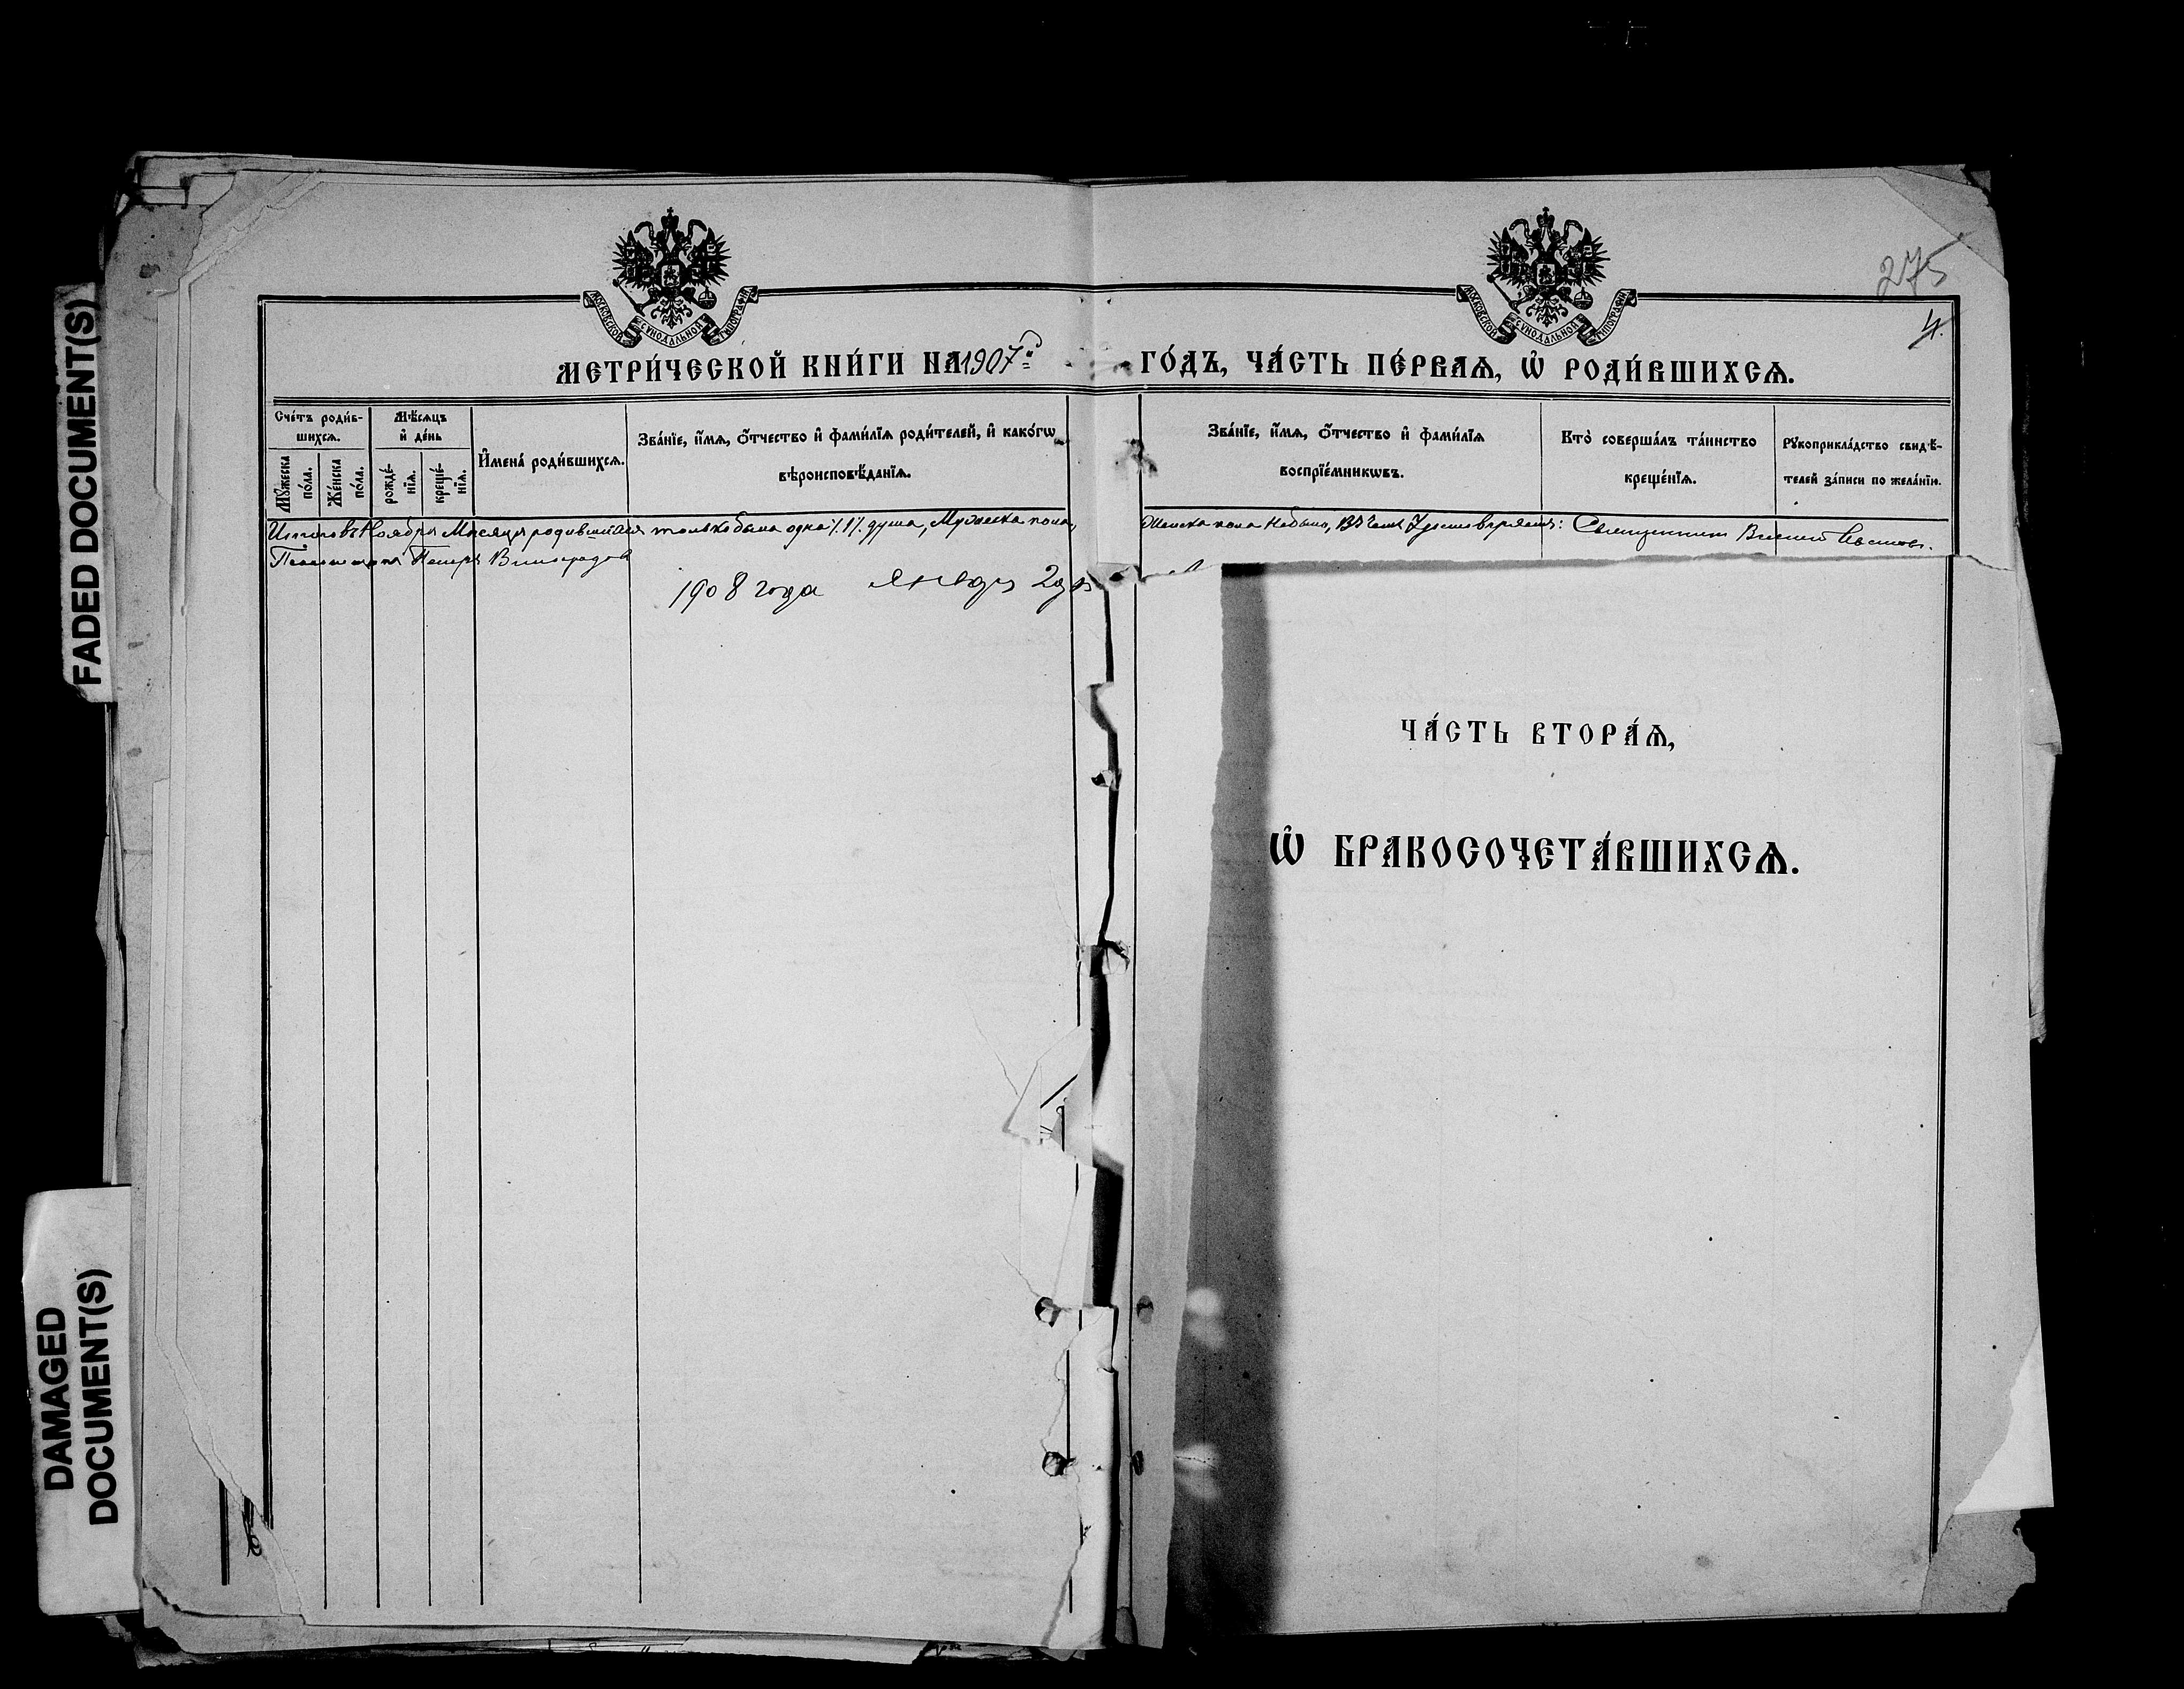 FADED DOCUMENT(S)
DAMAGED
DOCUMENT(S)
МОСКОВСКОЙ СѴНОДАЛЬНОЙ ТИПОГРАФІИ
МОСКОВСКОЙ СѴНОДАЛЬНОЙ ТИПОГРАФІИ
275
4.
МЕТРИ́ЧЕСКОЙ КНИ́ГИ НА 1907й ГО́ДЪ, ЧА́СТЬ ПЕ́РВАѦ, Ѡ҆ РОДИ́ВШИХСѦ.
Сче́тъ роди́в-
шихсѧ.
Мꙋ́жеска
по́ла.
Же́нска
по́ла.
Мѣ́сѧцъ
и҆ де́нь
рожде́-
нїѧ.
креще́-
нїѧ.
И҆мена̀ роди́вшихсѧ.
Зва́нїе, и҆́мѧ, ѻ҆́тчество и҆ фами́лїѧ роди́телей, и҆ како́гѡ
вѣроисповѣ́данїѧ.
Зва́нїе, и҆́мѧ, ѻ҆́тчество и҆ фами́лїѧ
воспрїе́мникѡвъ.
Кто̀ соверша́лъ та́инство
креще́нїѧ.
Рꙋкоприкла́дство свидѣ́-
телей за́писи по жела́нїю.
Итого въ Ноябрѣ Мѣсяцѣ родившихся только была одна /1/ душа, Мужеска пола, Женска пола Небыло, Въ чемъ Удостовѣряемъ: Священникъ
Псаломщикъ Петръ Виноградовъ
1908 года Январь 2 дня
ЧА́СТЬ ВТОРА́Ѧ,
Ѡ҆ БРАКОСОЧЕТА́ВШИХСѦ.